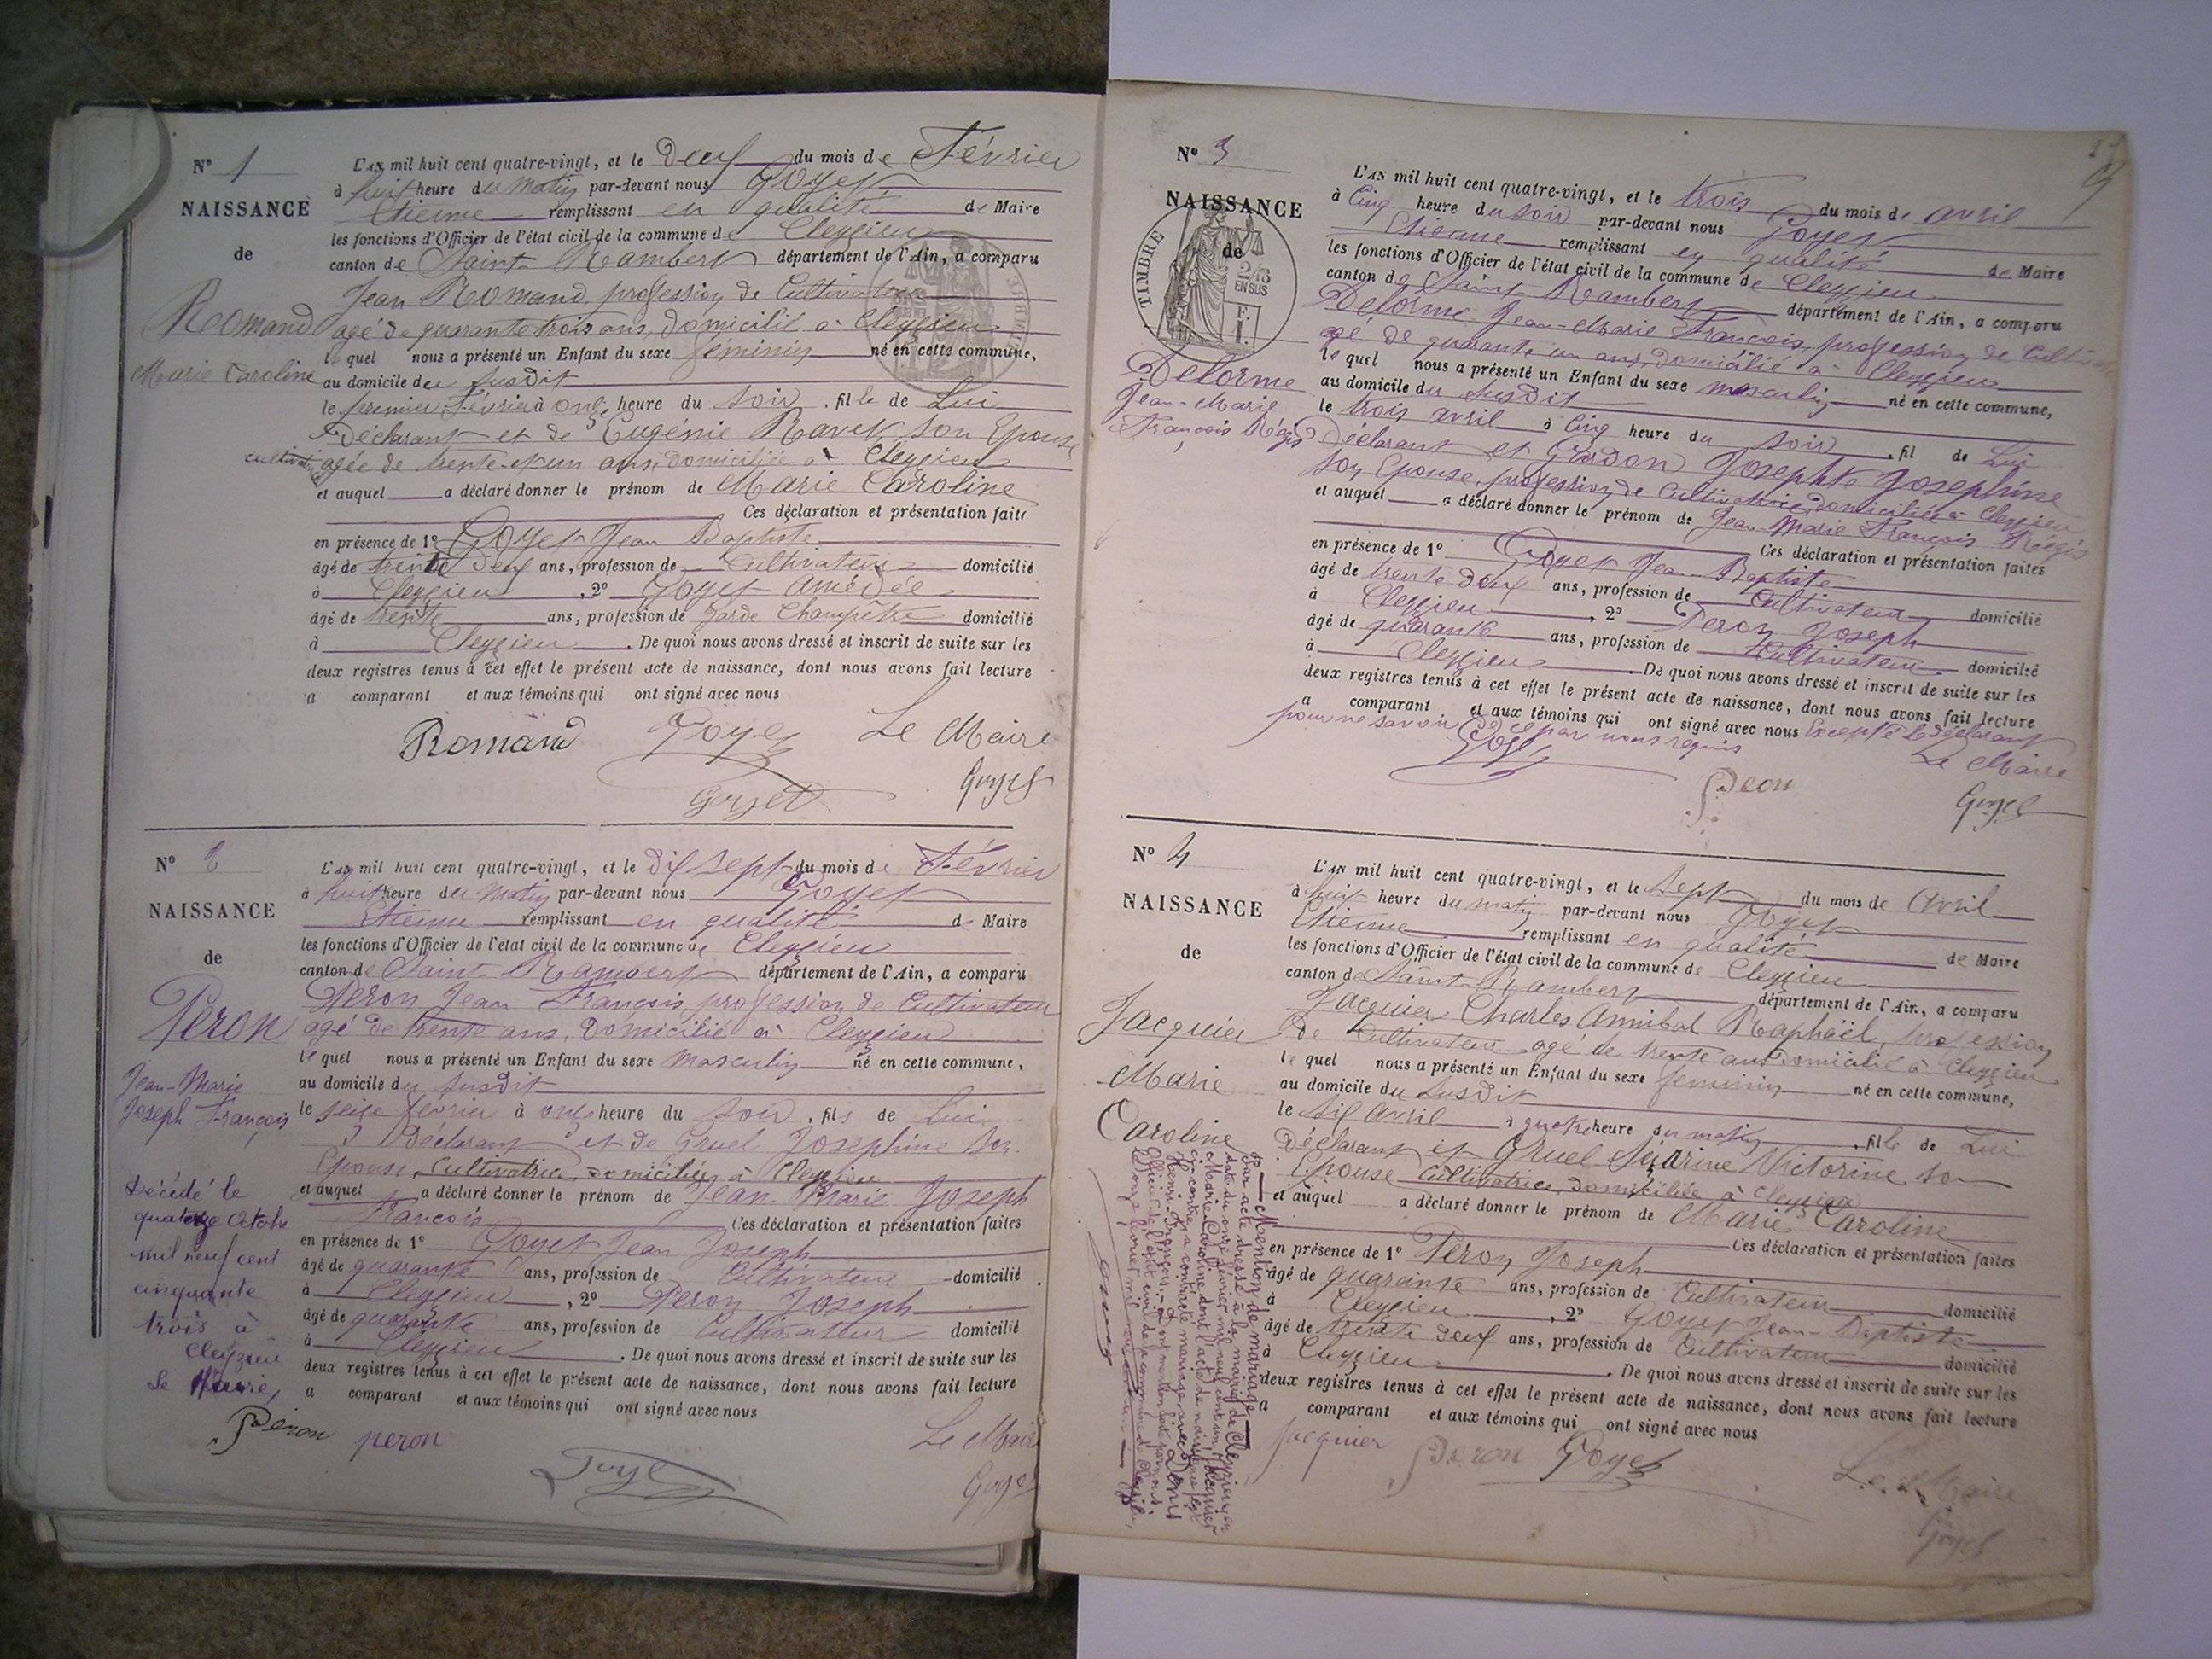 N° 1
NAISSANCE
de
Romand
Marie Caroline
L'AN mil huit cent quatre-vingt, et le Deux du mois de Février
à huit heure du Matin par-devant nous Goyet
Etienne remplissant en qualité de Maire
les fonctions d'Officier de l'état civil de la commune de Cleyzieu
canton de Saint-Rambert département de l'Ain, a comparu
Jean Romand, profession de Cultivateur
agé de quarante trois ans, domicilié à Cleyzieu
le quel nous a présenté un Enfant du sexe féminin né en cette commune,
au domicile du susdit
le premier Février à onze heure du soir, fille de Lui
Déclarant et de Eugénie Ravet son Epouse
cultivatrice agée de trente-et-un ans, domiciliée à Cleyzieu
et auquel a déclaré donner le prénom de Marie Caroline
Ces déclaration et présentation faite
en présence de 1° Goyet Jean Baptiste
âgé de trente deux ans, profession de Cultivateur domicilié
à Cleyzieu, 2° Goyet Amédée
âgé de trente ans, profession de Garde Champêtre domicilié
à Cleyzieu. De quoi nous avons dressé et inscrit de suite sur les
deux registres tenus à cet effet le présent acte de naissance, dont nous avons fait lecture
a comparant et aux témoins qui ont signé avec nous
Romand Goyet Le Maire
Goyet Goyet
N° 2
NAISSANCE
de
Peron
Jean-Marie
Joseph François
Décédé le
quatorze Octobre
mil neuf cent
cinquante
trois à
Cleyzieu
Le Maire,
L'AN mil huit cent quatre-vingt, et le dix sept du mois de Février
à huit heure du Matin par-devant nous Goyet
Etienne remplissant en qualité de Maire
les fonctions d'Officier de l'état civil de la commune de Cleyzieu
canton de Saint-Rambert département de l'Ain, a comparu
Peron Jean François, profession de Cultivateur
agé de trente ans, Domicilié à Cleyzieu
le quel nous a présenté un Enfant du sexe Masculin né en cette commune,
au domicile du susdit
le seize février à onze heure du soir, fils de Lui
Déclarant et de Gruel Josephine son
Epouse, Cultivatrice, domiciliée à Cleyzieu
et auquel a déclaré donner le prénom de Jean-Marie Joseph
François Ces déclaration et présentation faites
en présence de 1° Goyet Jean Joseph
âgé de quarante ans, profession de Cultivateur domicilié
à Cleyzieu, 2° Peron Joseph
âgé de quarante ans, profession de Cultivateur domicilié
à Cleyzieu. De quoi nous avons dressé et inscrit de suite sur les
deux registres tenus à cet effet le présent acte de naissance, dont nous avons fait lecture
a comparant et aux témoins qui ont signé avec nous
Péron peron Le Maire
Goyet Goyet
N° 3
NAISSANCE
de
TIMBRE
2/10
EN SUS
F.
1.
Delorme
Jean-Marie
François Régis
L'AN mil huit cent quatre-vingt, et le trois du mois de avril
à Cinq heure du soir par-devant nous Goyet
Etienne remplissant en qualité de Maire
les fonctions d'Officier de l'état civil de la commune de Cleyzieu
canton de Saint Rambert département de l'Ain, a comparu
Delorme Jean-Marie François, profession de
agé de quarante un ans, domicilié à Cleyzieu
le quel nous a présenté un Enfant du sexe masculin né en cette commune,
au domicile du susdit
le trois avril à Cinq heure du soir, fil de Lui
Déclarant et Josephte Josephine
son Epouse, profession de Cultivatrice, domiciliée à Cleyzieu
et auquel a déclaré donner le prénom de Jean-Marie François Régis
Ces déclaration et présentation faites
en présence de 1° Goyet Jean Baptiste
âgé de trente deux ans, profession de Cultivateur domicilié
à Cleyzieu, 2° Peron Joseph
âgé de quarante ans, profession de Cultivateur domicilié
à Cleyzieu De quoi nous avons dressé et inscrit de suite sur les
deux registres tenus à cet effet le présent acte de naissance, dont nous avons fait lecture
a comparant et aux témoins qui ont signé avec nous Excepté le déclarant
pour ne savoir de ce par nous requis
Goyet Le Maire
Peron Goyet
N° 4
NAISSANCE
de
Jacquier
Marie
Caroline
L'AN mil huit cent quatre-vingt, et le sept du mois de Avril
à huit heure du matin par-devant nous Goyet
Etienne remplissant en qualité de Maire
les fonctions d'Officier de l'état civil de la commune de Cleyzieu
canton de Saint-Rambert département de l'Ain, a comparu
Jacquier Charles Annibal Raphaël, profession
de Cultivateur agé de trente ans domicilié à Cleyzieu
le quel nous a présenté un Enfant du sexe feminin né en cette commune,
au domicile du susdit
le six avril à quatre heure du matin, fille de Lui
Déclarant et Gruel Victorine son
Epouse Cultivatrice, domiciliée à Cleyzieu
et auquel a déclaré donner le prénom de Marie Caroline
Ces déclaration et présentation faites
en présence de 1° Peron Joseph
âgé de quarante ans, profession de Cultivateur domicilié
à Cleyzieu, 2° Goyet Jean-Baptiste
âgé de trente deux ans, profession de Cultivateur domicilié
à Cleyzieu. De quoi nous avons dressé et inscrit de suite sur les
deux registres tenus à cet effet le présent acte de naissance, dont nous avons fait lecture
a comparant et aux témoins qui ont signé avec nous
Jacquier Peron Goyet
Le Maire
Goyet
Mention de mariage
Par acte dressé à la mairie de Cleyzieu en
date du onze février mil neuf cent un, Jacquier
Marie Caroline dont l'acte de naissance est
ci-contre, a contracté mariage avec Denis
Henri François.